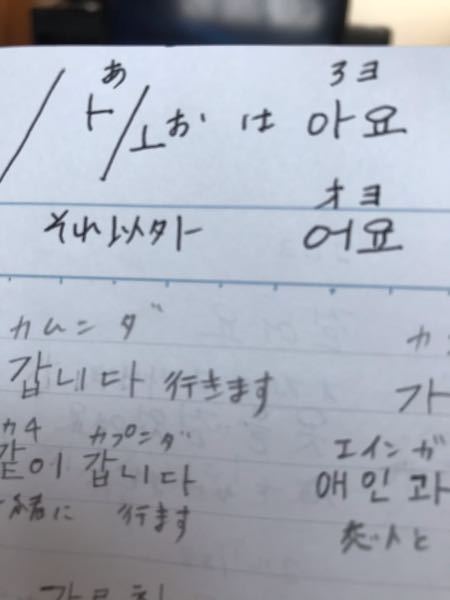 あ ろヨ
/ ㅏ/ㅗ お は 아요
オヨ
それ以外 어요
カムニダ カ
갑니다 行きます 가
カチ カプニダ エインガ
같이 갑니다 애인과
緒に 行ます 恋人と